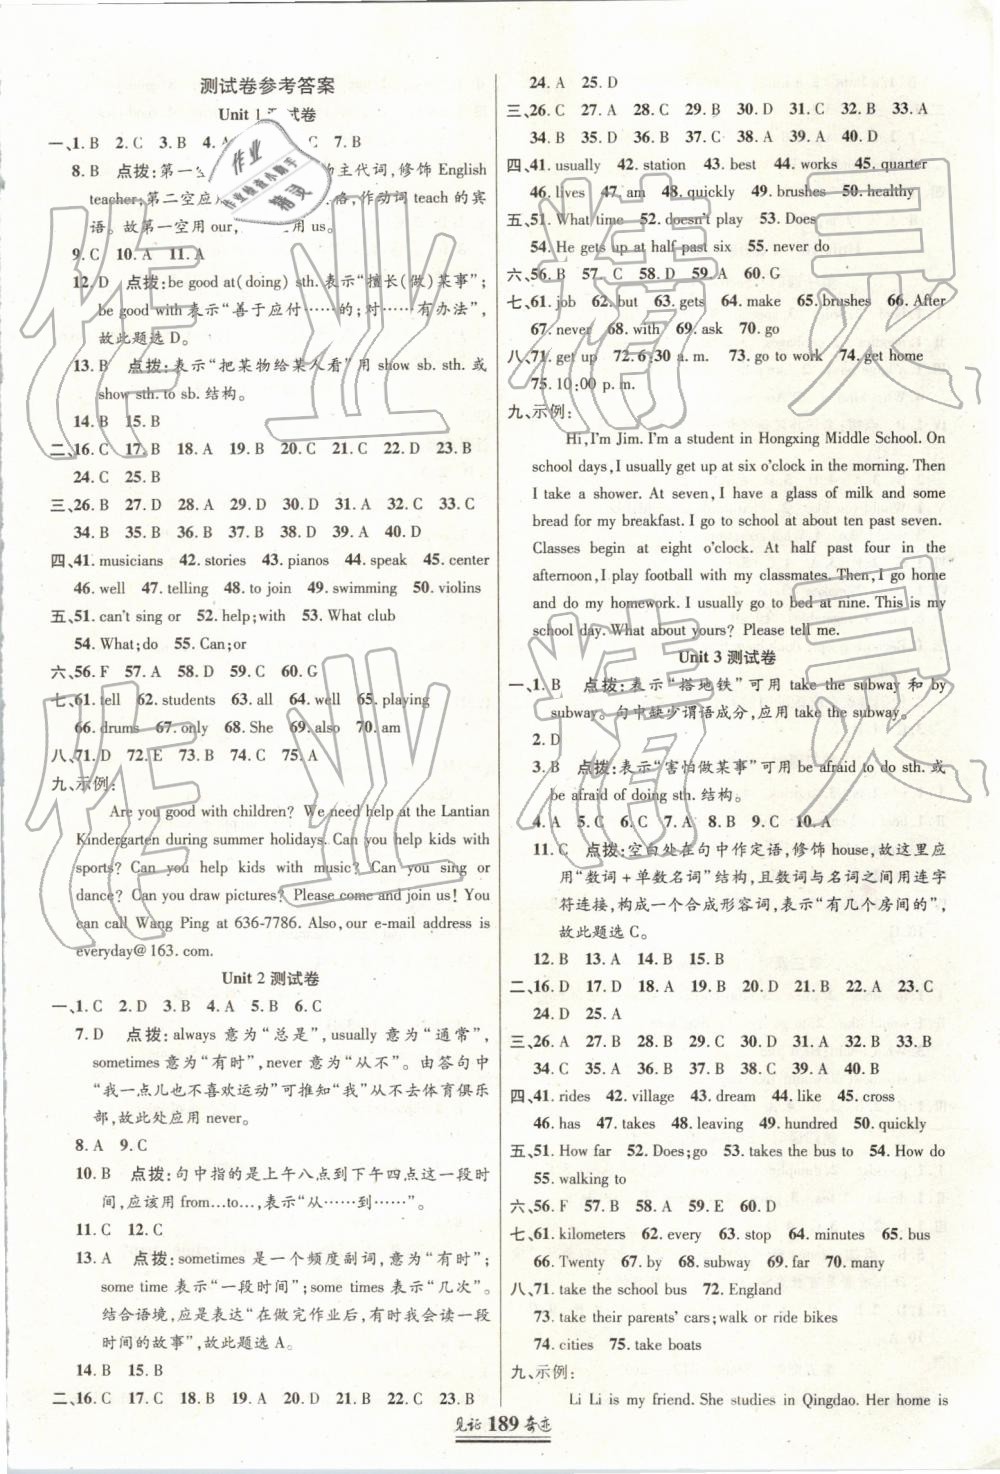 测试卷参考答案
Unit 1 测试卷
一、1. B 2. C 3. B 4. A C 7. B
8. B 点拨:第一空 物主代词,修饰 English
teacher;第二空应 格,作动词 teach 的宾
语。故第一空用 our, 用 us。
9. C 10. A 11. A
12. D 点拨:be good at(doing) sth.表示“擅长(做)某事”;
be good with表示“善于应付……的;对……有办法”,
故此题选 D。
13. B 点拨:表示“把某物给某人看”用 show sb. sth. 或
show sth. to sb. 结构。
14. B 15. B
二、16. C 17. B 18. A 19. B 20. C 21. C 22. D 23. B
24. C 25. B
三、26. B 27. D 28. A 29. B 30. D 31. A 32. C 33. C
34. B 35. B 36. B 37. C 38. D 39. A 40. D
四、41. musicians 42. stories 43. pianos 44. speak 45. center
46. well 47. telling 48. to join 49. swimming 50. violins
五、51. can't sing or 52. help;with 53. What club
54. What;do 55. Can;or
六、56. F 57. A 58. D 59. C 60. G
七、61. tell 62. students 63. all 64. well 65. playing
66. drums 67. only 68. She 69. also 70. am
八、71. D 72. E 73. B 74. C 75. A
九、示例:
Are you good with children? We need help at the Lantian
Kindergarten during summer holidays. Can you help kids with
sports? Can you help kids with music? Can you sing or
dance? Can you draw pictures? Please come and join us! You
can call Wang Ping at 636-7786. Also, our e-mail address is
everyday@163. com.
Unit 2 测试卷
一、1. C 2. D 3. B 4. A 5. B 6. C
7. D 点拨:always 意为“总是”,usually 意为“通常”,
sometimes 意为“有时”,never 意为“从不”。由答句中
“我一点儿也不喜欢运动”可推知“我”从不去体育俱乐
部,故此处应用 never。
8. A 9. C
10. B 点拨:句中指的是上午八点到下午四点这一段时
间,应该用 from…to…,表示“从……到……”。
11. C 12. C
13. A 点拨:sometimes 是一个频度副词,意为“有时”;
some time 表示“一段时间”;some times 表示“几次”。
结合语境,应是表达“在做完作业后,有时我会读一段
时间的故事”,故此题选 A。
14. B 15. B
二、16. C 17. C 18. C 19. A 20. D 21. D 22. C 23. B
24. A 25. D
三、26. C 27. A 28. C 29. B 30. D 31. C 32. B 33. A
34. B 35. B 36. D 37. C 38. A 39. A 40. D
四、41. usually 42. station 43. best 44. works 45. quarter
46. lives 47. am 48. quickly 49. brushes 50. healthy
五、51. What time 52. doesn't play 53. Does
54. He gets up at half past six 55. never do
六、56. B 57. C 58. D 59. A 60. G
七、61. job 62. but 63. gets 64. make 65. brushes 66. After
67. never 68. with 69. ask 70. go
八、71. get up 72. 6:30 a. m. 73. go to work 74. get home
75. 10:00 p. m.
九、示例:
Hi,I'm Jim. I'm a student in Hongxing Middle School. On
school days, I usually get up at six o'clock in the morning. Then
I take a shower. At seven, I have a glass of milk and some
bread for my breakfast. I go to school at about ten past seven.
Classes begin at eight o'clock. At half past four in the
afternoon,I play football with my classmates. Then,I go home
and do my homework. I usually go to bed at nine. This is my
school day. What about yours? Please tell me.
Unit 3 测试卷
一、1. B 点拨:表示“搭地铁”可用 take the subway 和 by
subway。句中缺少谓语成分,应用 take the subway。
2. D
3. B 点拨:表示“害怕做某事”可用 be afraid to do sth. 或
be afraid of doing sth. 结构。
4. A 5. C 6. C 7. A 8. B 9. C 10. A
11. C 点拨:空白处在句中作定语,修饰 house,故这里应
用“数词+单数名词”结构,且数词与名词之间用连字
符连接,构成一个合成形容词,表示“有几个房间的”,
故此题选 C。
12. B 13. A 14. B 15. B
二、16. D 17. D 18. A 19. C 20. D 21. A 22. A 23. C
24. D 25. A
三、26. A 27. B 28. C 29. D 30. D 31. A 32. B 33. B
34. C 35. A 36. C 37. B 38. C 39. A 40. B
四、41. rides 42. village 43. dream 44. like 45. cross
46. has 47. takes 48. leaving 49. hundred 50. quickly
五、51. How far 52. Does;go 53. takes the bus to 54. How do
55. walking to
六、56. F 57. B 58. A 59. E 60. D
七、61. kilometers 62. every 63. stop 64. minutes 65. bus
66. Twenty 67. by 68. subway 69. far 70. many
八、71. take the school bus 72. England
73. take their parents' cars;walk or ride bikes
74. cities 75. take boats
九、示例:
Li Li is my friend. She studies in Qingdao. Her home is
见证 189 奇迹
作业精灵
作业精灵
作业
作业检查小助手
精灵